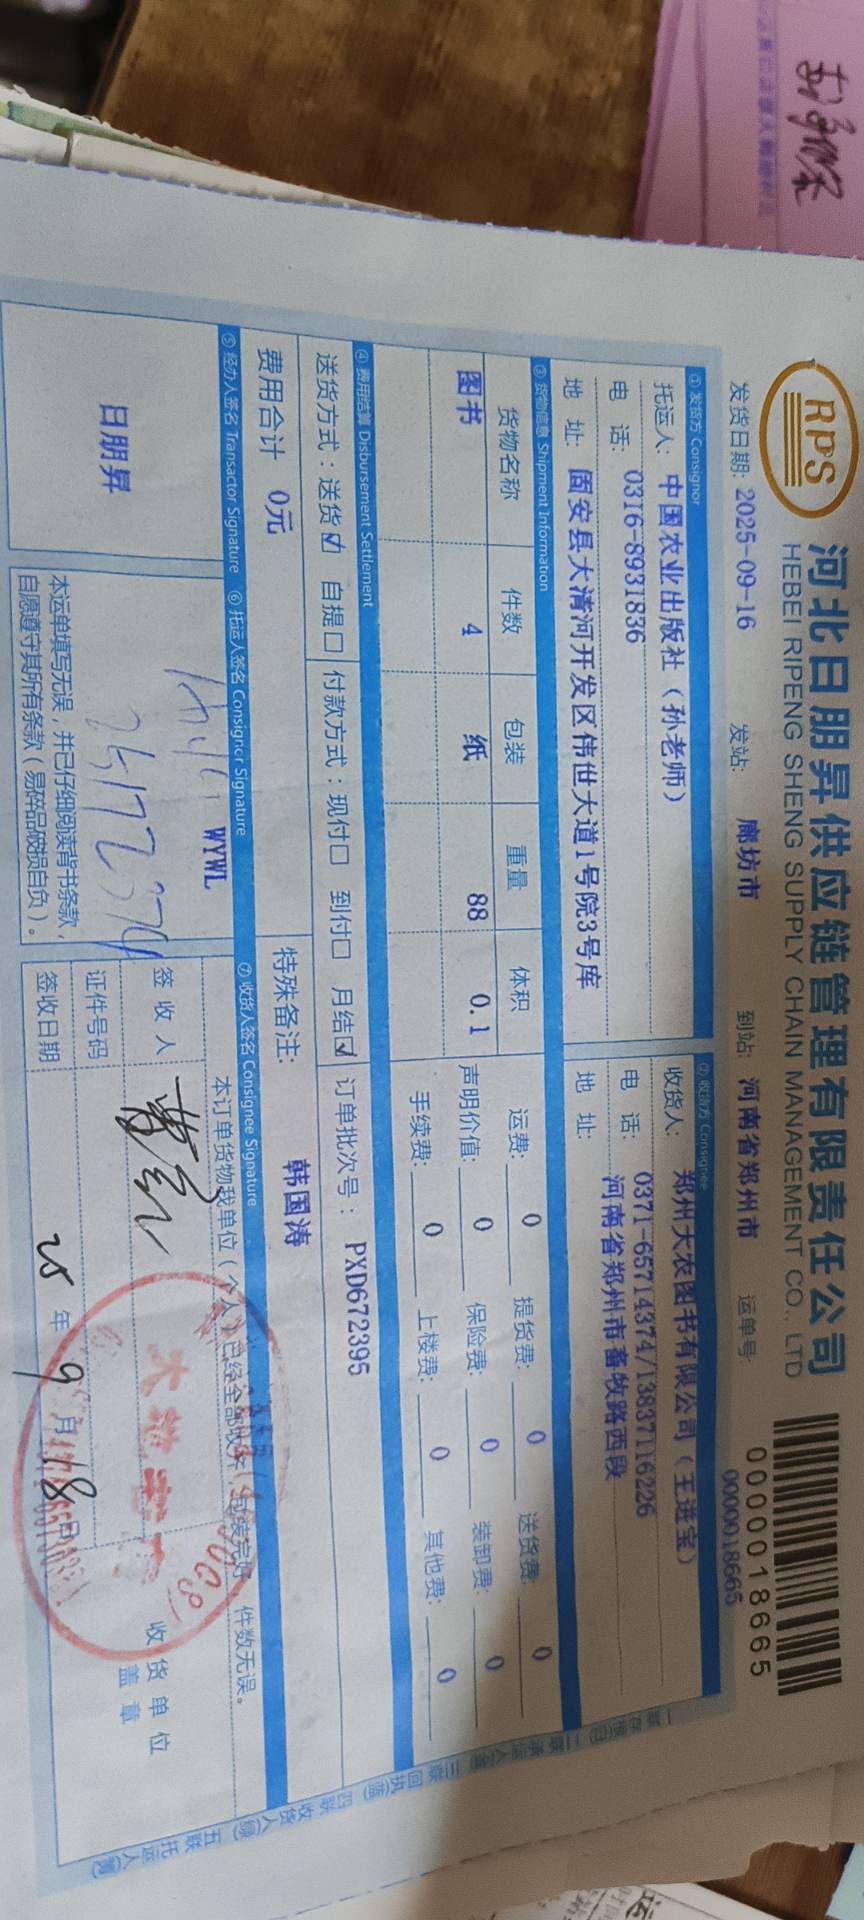 RPS
河北日朋昇供应链管理有限责任公司
HEBEI RIPENG SHENG SUPPLY CHAIN MANAGEMENT CO., LTD
0000018665
发货日期: 2025-09-16 发站: 廊坊市 到站: 河南省郑州市 运单号 0000018665
① 发货方 Consignor ② 收货方 Consignee
托运人: 中国农业出版社（孙老师） 收货人: 郑州大农图书有限公司（王进宝）
电 话: 0316-8931836 电 话: 0371-65714374/13837116226
地 址: 固安县大清河开发区伟世大道1号院3号库 地 址: 河南省郑州市畜牧路西段
③ 货物信息 Shipment Information
货物名称 件数 包装 重量 体积 运费: 0 提货费: 0 送货费: 0
图书 4 纸 88 0.1 声明价值: 0 保险费: 0 装卸费: 0
手续费: 0 上楼费: 0 其他费: 0
④ 费用结算 Disbursement Settlement
送货方式：送货☑ 自提□ 付款方式：现付□ 到付□ 月结☑ 订单批次号： PXD672395
费用合计 0元 特殊备注: 韩国涛
⑤ 经办人签名 Transactor Signature ⑥ 托运人签名 Consignor Signature ⑦ 收货人签名 Consignee Signature
日朋昇
WYWL
本运单填写无误，并已仔细阅读背书条款，
自愿遵守其所有条款（易碎品破损自负）。
本订单货物我单位（个人）已经全部收齐，包装完好，件数无误。
签 收 人
证件号码
签收日期 25 年 9 月 18 日
收 货 单 位
盖 章
一联存根(白) 二联承运人(金) 三联回执(蓝) 四联收货人(绿) 五联托运人(黄)